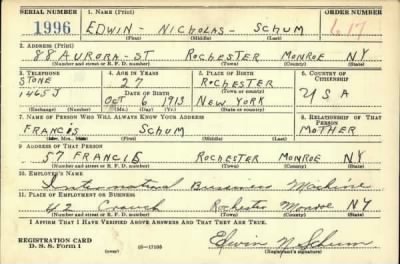 SERIAL NUMBER 1. NAME (Print) ORDER NUMBER
1996 EDWIN - NICHOLAS - SCHUM 617
(First) (Middle) (Last)
2. ADDRESS (Print)
88 AURORA-ST ROCHESTER MONROE NY
(Number and street or R. F. D. number) (Town) (County) (State)
3. TELEPHONE 4. AGE IN YEARS 5. PLACE OF BIRTH 6. COUNTRY OF CITIZENSHIP
STONE 27 ROCHESTER
1465J DATE OF BIRTH (Town or county) USA
OCT 6 1913 NEW YORK
(Exchange) (Number) (Mo.) (Day) (Yr.) (State or country)
7. NAME OF PERSON WHO WILL ALWAYS KNOW YOUR ADDRESS 8. RELATIONSHIP OF THAT PERSON
FRANCIS SCHUM MOTHER
(Mr., Mrs., Miss) (First) (Middle) (Last)
9. ADDRESS OF THAT PERSON
57 FRANCIS ROCHESTER MONROE NY
(Number and street or R. F. D. number) (Town) (County) (State)
10. EMPLOYER'S NAME
International Business Machine
11. PLACE OF EMPLOYMENT OR BUSINESS
42 Rochester Monroe NY
(Number and street or R. F. D. number) (Town) (County) (State)
I AFFIRM THAT I HAVE VERIFIED ABOVE ANSWERS AND THAT THEY ARE TRUE.
REGISTRATION CARD
D. S. S. Form 1 16-17105 Edwin N Schum
(Registrant's signature)